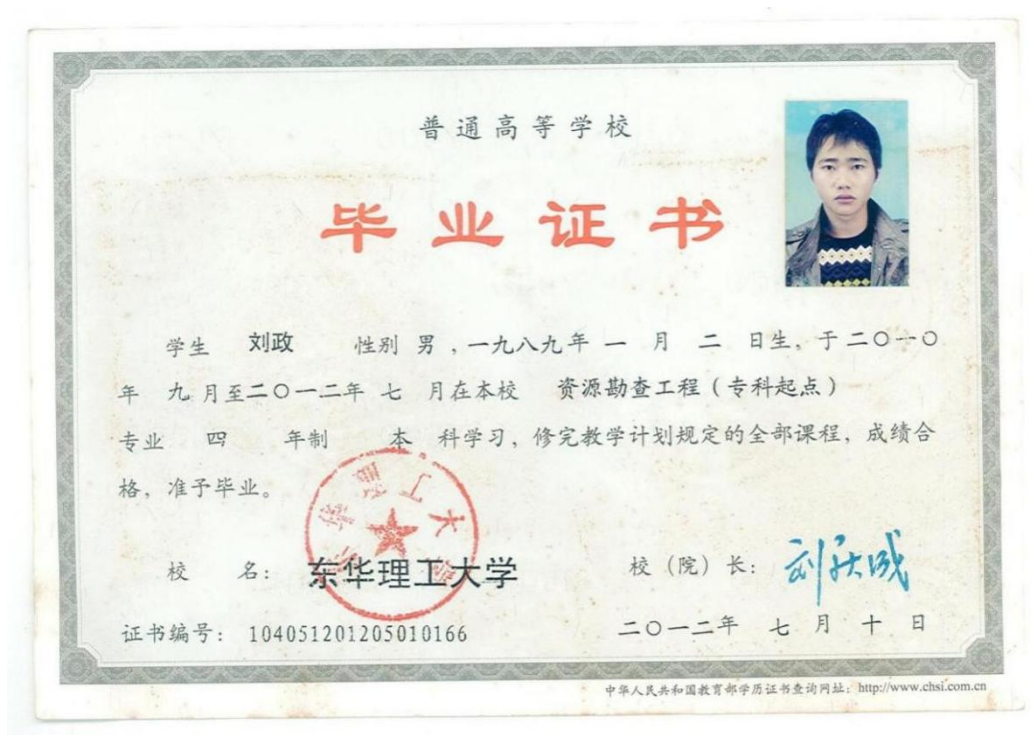 普通高等学校
毕业证书
学生 刘政 性别 男 ，一九八九年 一 月 二 日生，于二〇一〇
年 九 月至二〇一二年 七 月在本校 资源勘查工程（专科起点）
专业 四 年制 本 科学习，修完教学计划规定的全部课程，成绩合
格，准予毕业。
东华理工大学
校 名： 东华理工大学 校（院）长：
证书编号： 104051201205010166 二〇一二年 七 月 十 日
中华人民共和国教育部学历证书查询网址：http://www.chsi.com.cn